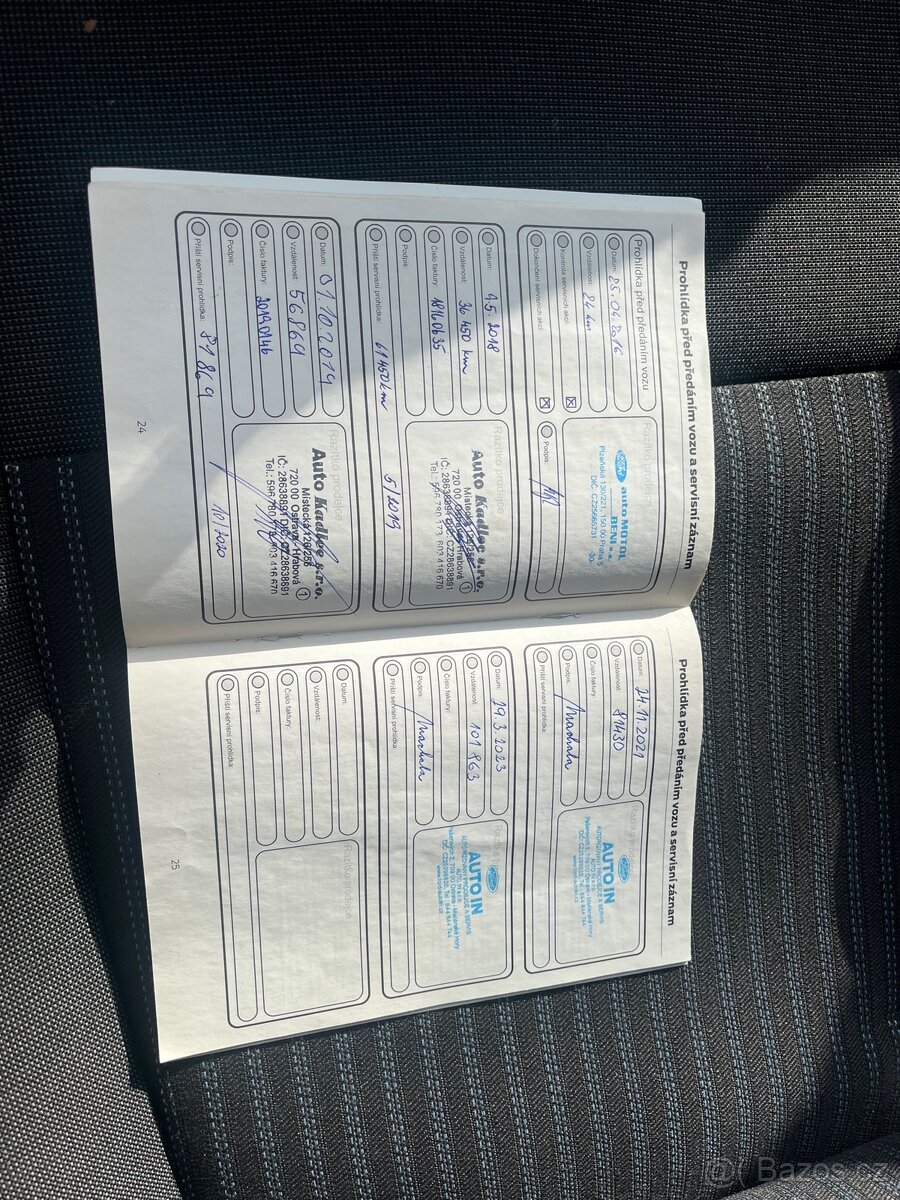 Prohlídka před předáním vozu a servisní záznam
Prohlídka před předáním vozu
Datum: 25.04.2016
Vzdálenost: 24 km
Kontrola servisních akcí:
Dokončení servisních akcí:
Podpis:
Razítko prodejce
Ford
auto MOTOL
BENI a.s.
150 00 Praha 5
-30-
Datum: 9.5.2018
Vzdálenost: 36 450 km
Číslo faktury: 18160635
Podpis:
Příští servisní prohlídka: 61 450 km 5/2019
Razítko prodejce
Auto Kadlec s.r.o.
Místecká
720 00 Ostrava-Hrabová 1
IČ: 28638891 DIČ: CZ28638891
Tel.: 596 780 173, 603 416 670
Datum: 01.10.2019
Vzdálenost: 56869
Číslo faktury:
Podpis:
Příští servisní prohlídka: 81869 10/2020
Razítko prodejce
Auto Kadlec s.r.o.
Místecká
720 00 Ostrava-Hrabová 1
IČ: 28638891 DIČ: CZ28638891
Tel.: 596 780 173, 603 416 670
24
Prohlídka před předáním vozu a servisní záznam
Datum: 24.11.2021
Vzdálenost: 81430
Číslo faktury:
Podpis: Machala
Příští servisní prohlídka:
Razítko prodejce
Ford
AUTO IN
AUTORIZOVANÝ PRODEJCE A SERVIS
709 00 Ostrava - Mariánské Hory
Datum: 29.3.2023
Vzdálenost: 101 963
Číslo faktury:
Podpis: Machala
Příští servisní prohlídka:
Razítko prodejce
Ford
AUTO IN
AUTORIZOVANÝ PRODEJCE A SERVIS
709 00 Ostrava - Mariánské Hory
Datum:
Vzdálenost:
Číslo faktury:
Podpis:
Příští servisní prohlídka:
Razítko prodejce
25
@ Bazos.cz